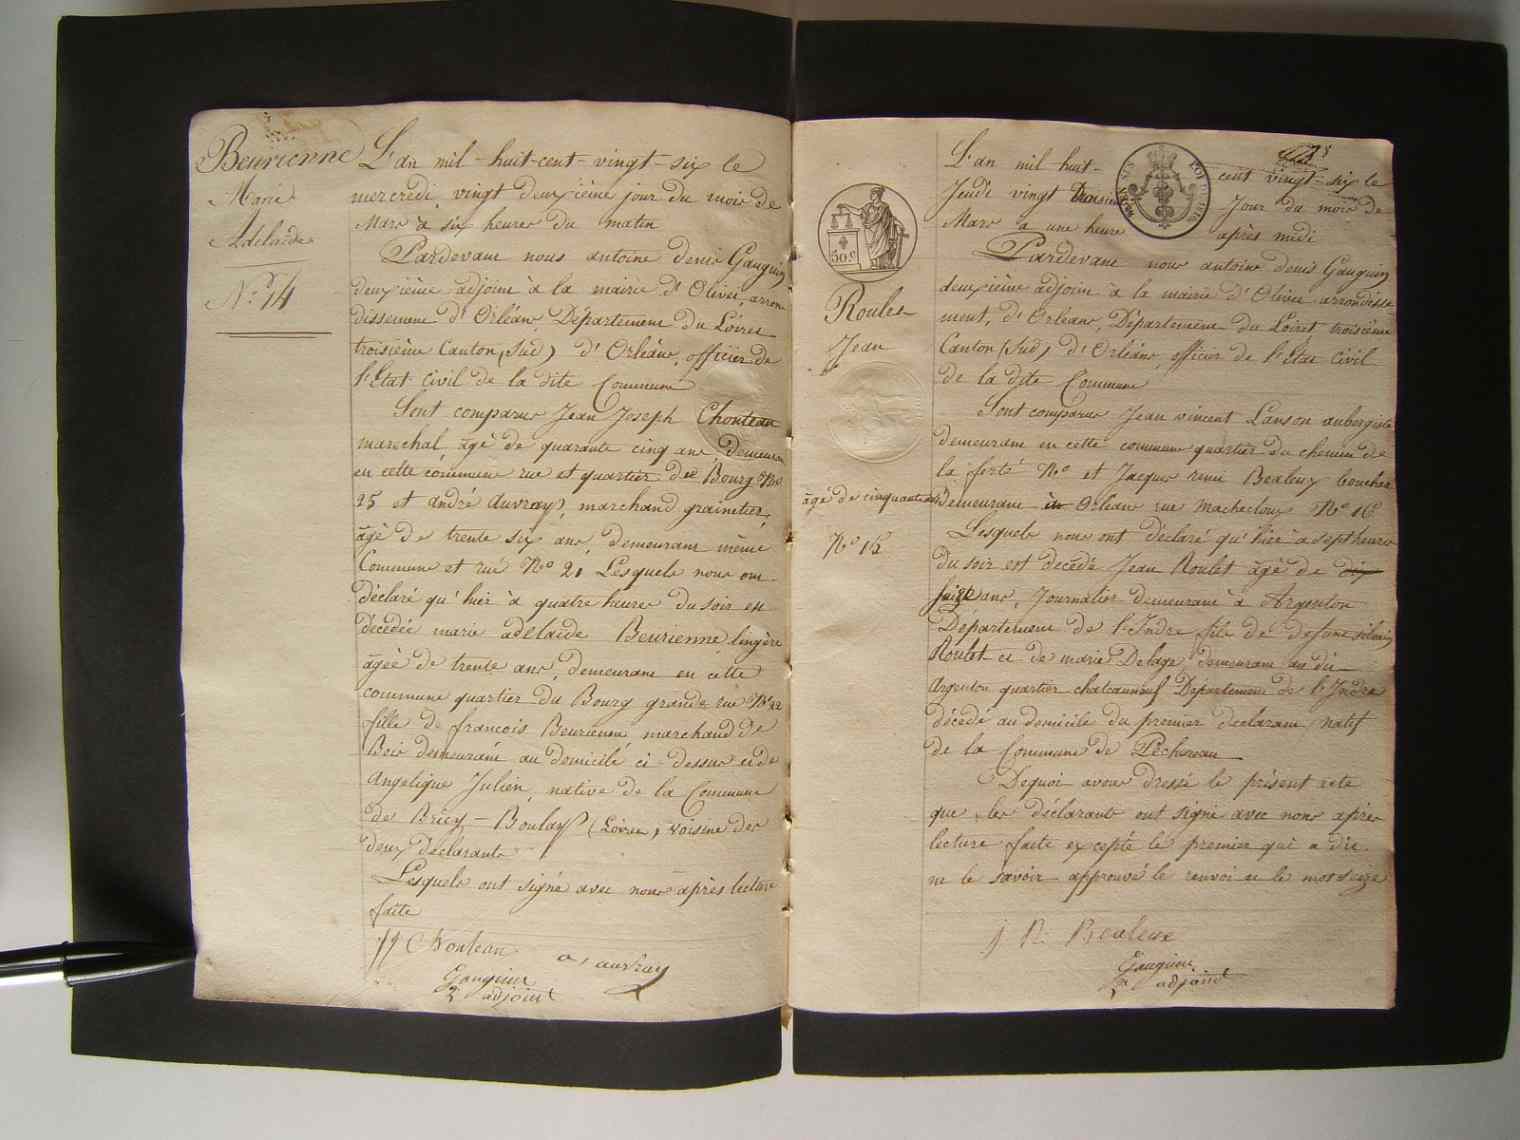 Beurienne
Marie
Adelaïde
N.º 14
L'an mil-huit-cent-vingt-six le
mercredi, vingt deuxième jour du mois de
Mars à six heures du matin
Pardevant nous antoine denis Gauguin
deuxième adjoint à la mairie d'Olivet, arron
dissement d'Orléans, Département du Loiret
troisième Canton (Sud) d'Orléans, officier de
l'Etat civil de la dite Commune
Sont comparus Jean Joseph Chouteau
marechal, âgé de quarante cinq ans, demeurant
en cette commune rue et quartier du Bourg Nº
25 et andré auvray, marchand grainetier,
âgé de trente six ans, demeurant même
Commune et rue Nº 21 Lesquels nous ont
déclaré qu'hier à quatre heures du soir est
décédée marie adelaïde Beurienne lingère
âgée de trente ans, demeurant en cette
commune quartier du Bourg grande rue Nº 22
fille de françois Beurienne marchand de
Bois demeurant au domicile ci-dessus et de
Angelique Julien, native de la Commune
de Bricy-Boulay (Loiret), voisine des
deux déclarants
Lesquels ont signé avec nous après lecture
faite
JJ Chouteau
a, auvray
Gauguin
2e adjoint
50 c
Roulet
Jean
âgé de cinquante ans
Nº 15
L'an mil huit-cent vingt-six le
Jeudi vingt troisième Jour du mois de
Mars à une heure après midi
Pardevant nous antoine denis Gauguin
deuxième adjoint à la mairie d'Olivet arrondisse
ment, d'Orléans, Département du Loiret troisième
Canton (Sud) d'Orléans, officier de l'Etat civil
de la dite Commune
Sont comparus Jean vincent Lanson aubergiste
demeurant en cette commune quartier du chemin de
la ferté Nº et Jacques remi Bealeux boucher
demeurant in Orléans rue Macheclou Nº 16
Lesquels nous ont déclaré qu'hier à sept heures
du soir est décédé Jean Roulet âgé de dix
seize ans, Journalier demeurant à Argenton
Département de l'Indre fils de defunt silvain
Roulet et de marie Delage demeurant au dit
Argenton quartier chateauneuf Département de l'Indre
décédé au domicile du premier declarant, natif
de la Commune de Péchereau
Dequoi avons dressé le présent acte
que les déclarants ont signé avec nous après
lecture faite excepté le premier qui a dit
ne le savoir approuvé le renvoi et le mot seize
j R Bealeux
Gauguin
2e adjoint